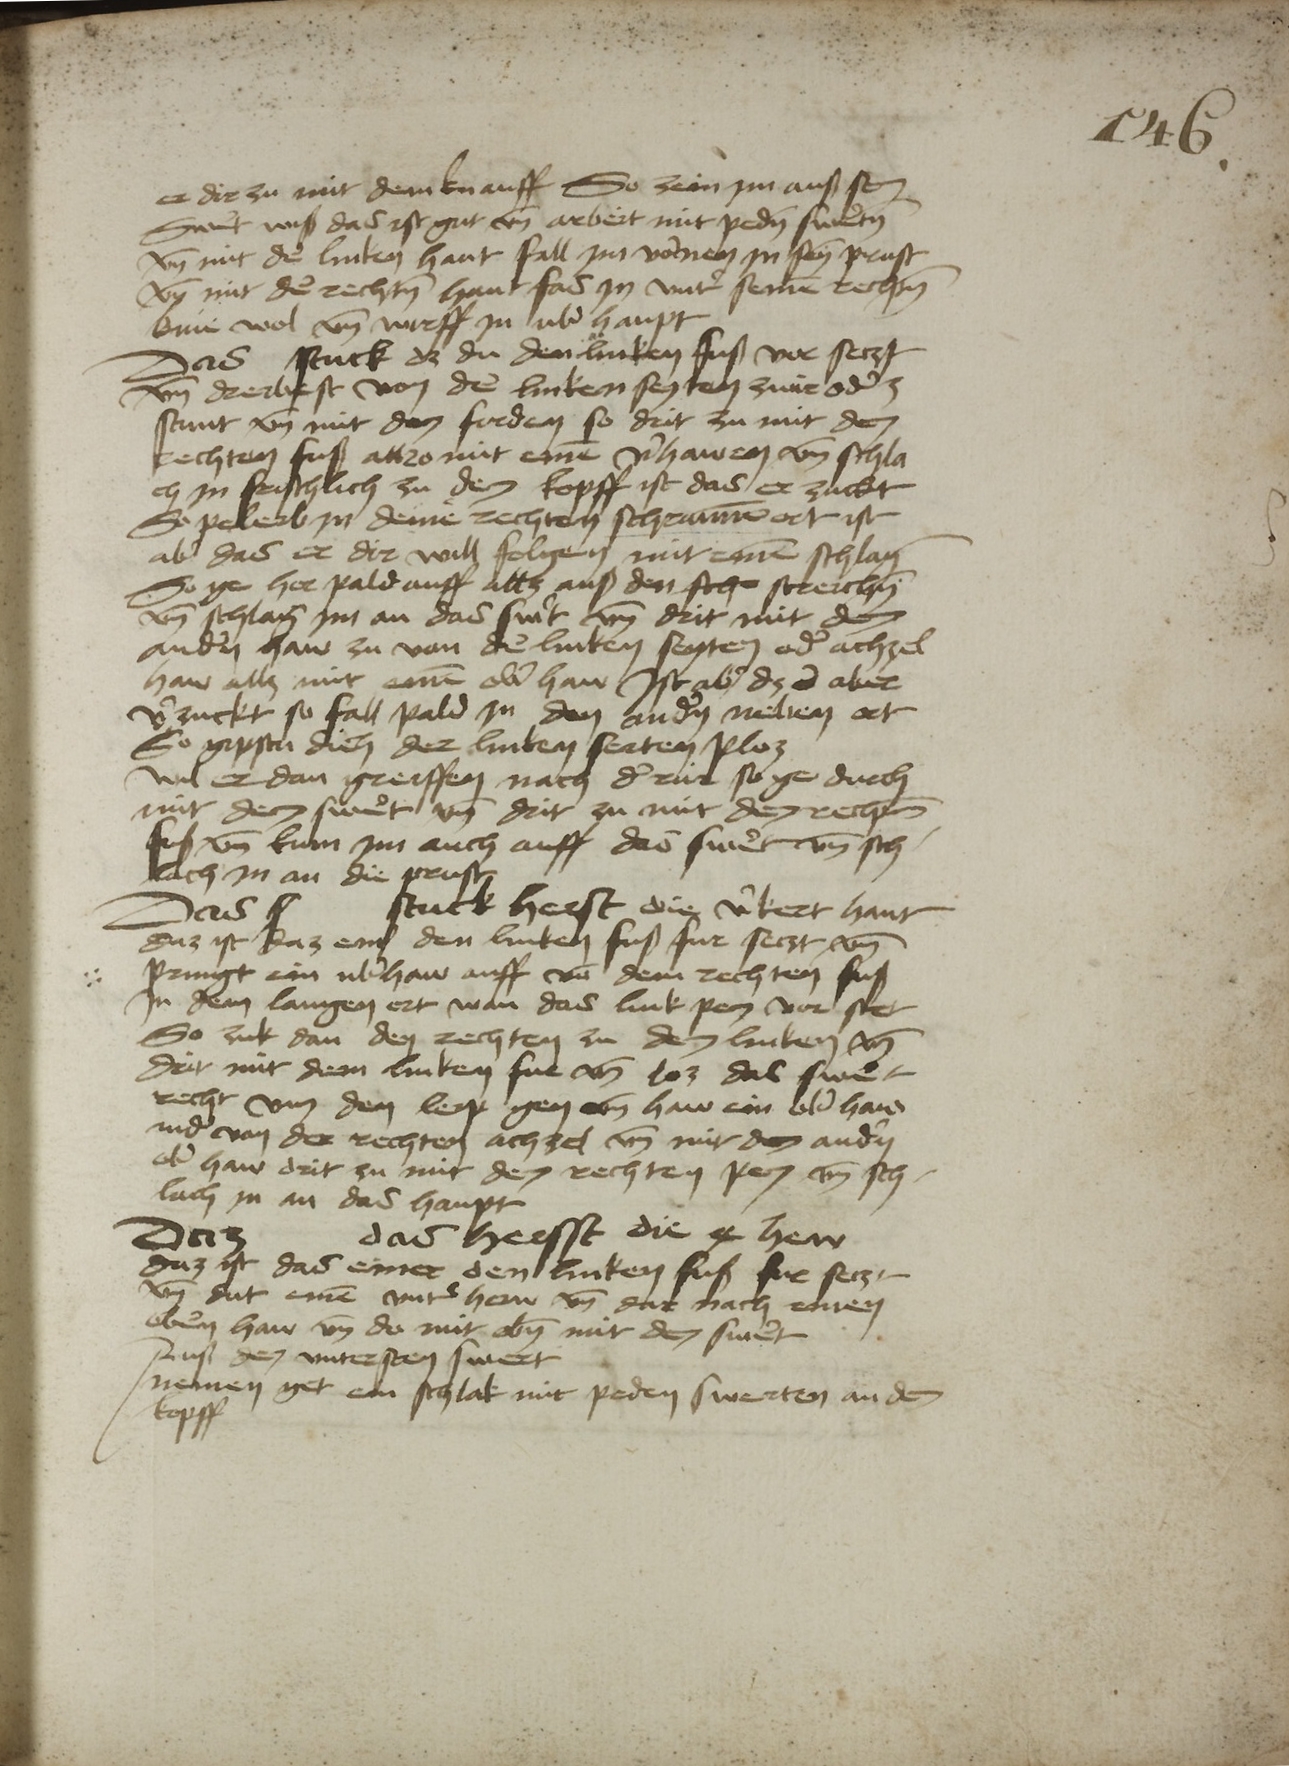 146.
er dir zu mit dem knauff So zein im auß sem
Swert wiß das ist gut vn̄ arbeit mit pedn̄ swertn̄
vn̄ mit der linken hant fall im vornen in sein prust
vn̄ mit der rechtn̄ hant fas in vnter seine rechtn̄
knie wol vn̄ wirff in uber haupt
Das stuck dz du den linken fuß vor seczt
vn̄ von der linken seyten
stant vn̄ mit dem forden so drit zu mit dem
rechten fuß allzo mit eine v̄hawen vn̄ schla
ch in frischlich zu dem kopff ist das er zuckt
So peleib in deine rechten schrannē ort ist
aber das er dir will folgen mit eine schlag
So ge her pald auff allz auß den streichn̄
vn̄ schlag im an das swert vn̄ drit mit dem
andern haw zu von der linken seyten oder achzel
haw allz mit eine ober haw Ist aber dz er aber
v̄zuckt so fall pald in den andern neben ort
So gipstu dich der linken seiten ploz
wil er dan greiffen nach der so ge durch
mit dem swert vn̄ drit zu mit dem rechtn̄
fuß vn̄ kum im auch auff das swert vn̄ sch
lach in an die prust
Das stuck heist die v̄kert hant
daz ist daz einß den linken fuß fur seczt vn̄
pringt ein uberhaw auff von dem rechten fuß
In dem langen ort wan das link pein vor stet
So zuk dan den rechten zu dem linken vn̄
drit mit dem linken fur vn̄ loz das swert
recht vm den leip gen vn̄ haw ein ober haw
nider von der rechten achzel vn̄ mit dem andern
ober haw drit zu mit dem rechten pein vn̄ sch
lach in an das haupt
Daz das heisst die 4 hew
daz ist das einer den linken fuß fur seczt
vn̄ dut eine vnter hew vn̄ dar nach einen
obern haw vn̄ do mit obn̄ mit dem swert
auß dem vntersten swert
nemen get ein schlak mit peden swerten an den
kopff